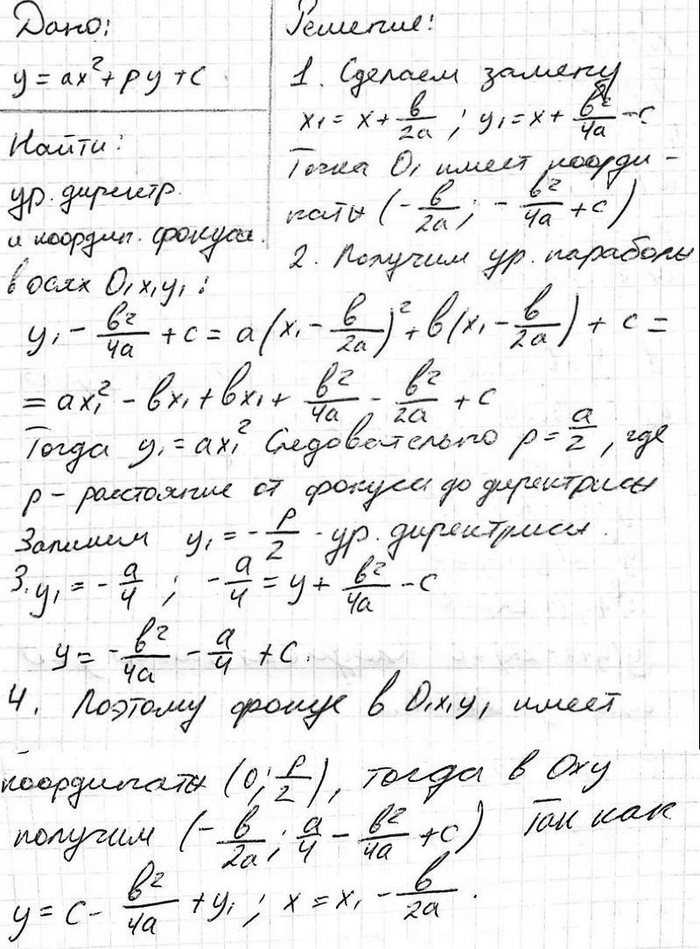 Дано:
y = ax² + py + c
Найти:
ур. директр.
и координ. фокуса
Решение:
1. Сделаем замену
x₁ = x + в/2a ; y₁ = x + в²/4a - c
Точка O₁ имеет коорди-
наты (- в/2a ; - в²/4a + c)
2. Получим ур. параболы
в осях O₁x₁y₁ :
y₁ - в²/4a + c = a(x₁ - в/2a)² + в(x₁ - в/2a) + c =
= ax₁² - вx₁ + вx₁ + в²/4a - в²/2a + c
Тогда y₁ = ax₁² Следовательно p = a/2 , где
p - расстояние от фокуса до директрисы
Запишем y₁ = - p/2 - ур. директрисы.
3. y₁ = - a/4 ; - a/4 = y + в²/4a - c
y = - в²/4a - a/4 + c.
4. Поэтому фокус в O₁x₁y₁ имеет
координаты (0; p/2), тогда в Oxy
получим (- в/2a ; a/4 - в²/4a + c) Так как
y = c - в²/4a + y₁ ; x = x₁ - в/2a .